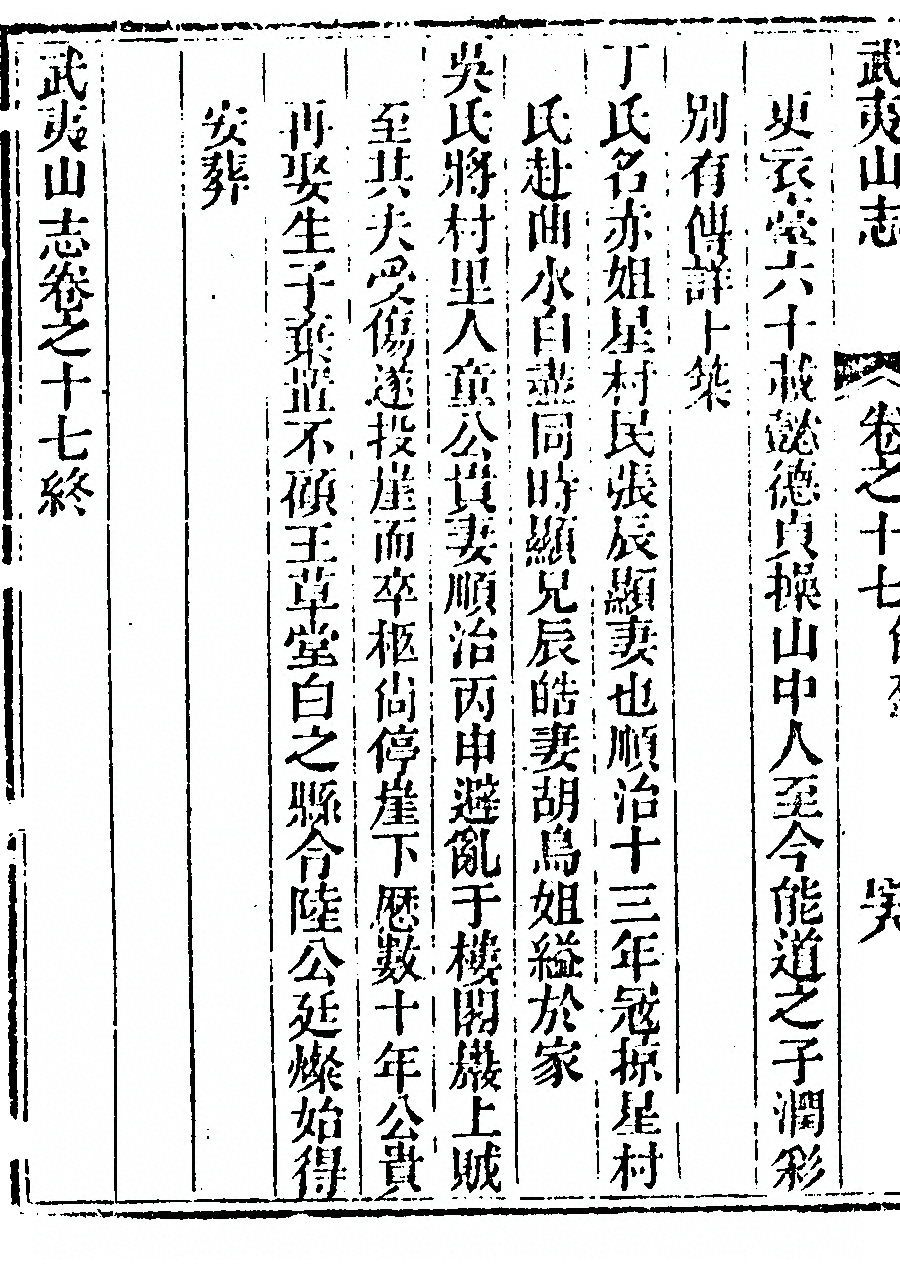 武夷山志 卷之十七
吏哀臺六十載懿德貞操山中人至今能道之子潤彩
別有傳詳卜築
丁氏名亦姐星村民張辰顯妻也順治十三年冦掠星村
氏赴曲水自盡同時顯兄辰皓妻胡烏姐縊於家
吳氏將村里人童公貴妻順治丙申避亂于樓閣巖上賊
至其夫受傷遂投崖而卒柩尙停崖下歷數十年公貴
再娶生子棄置不顧王草堂白之縣令陸公廷燦始得
安葬
武夷山志卷之十七終